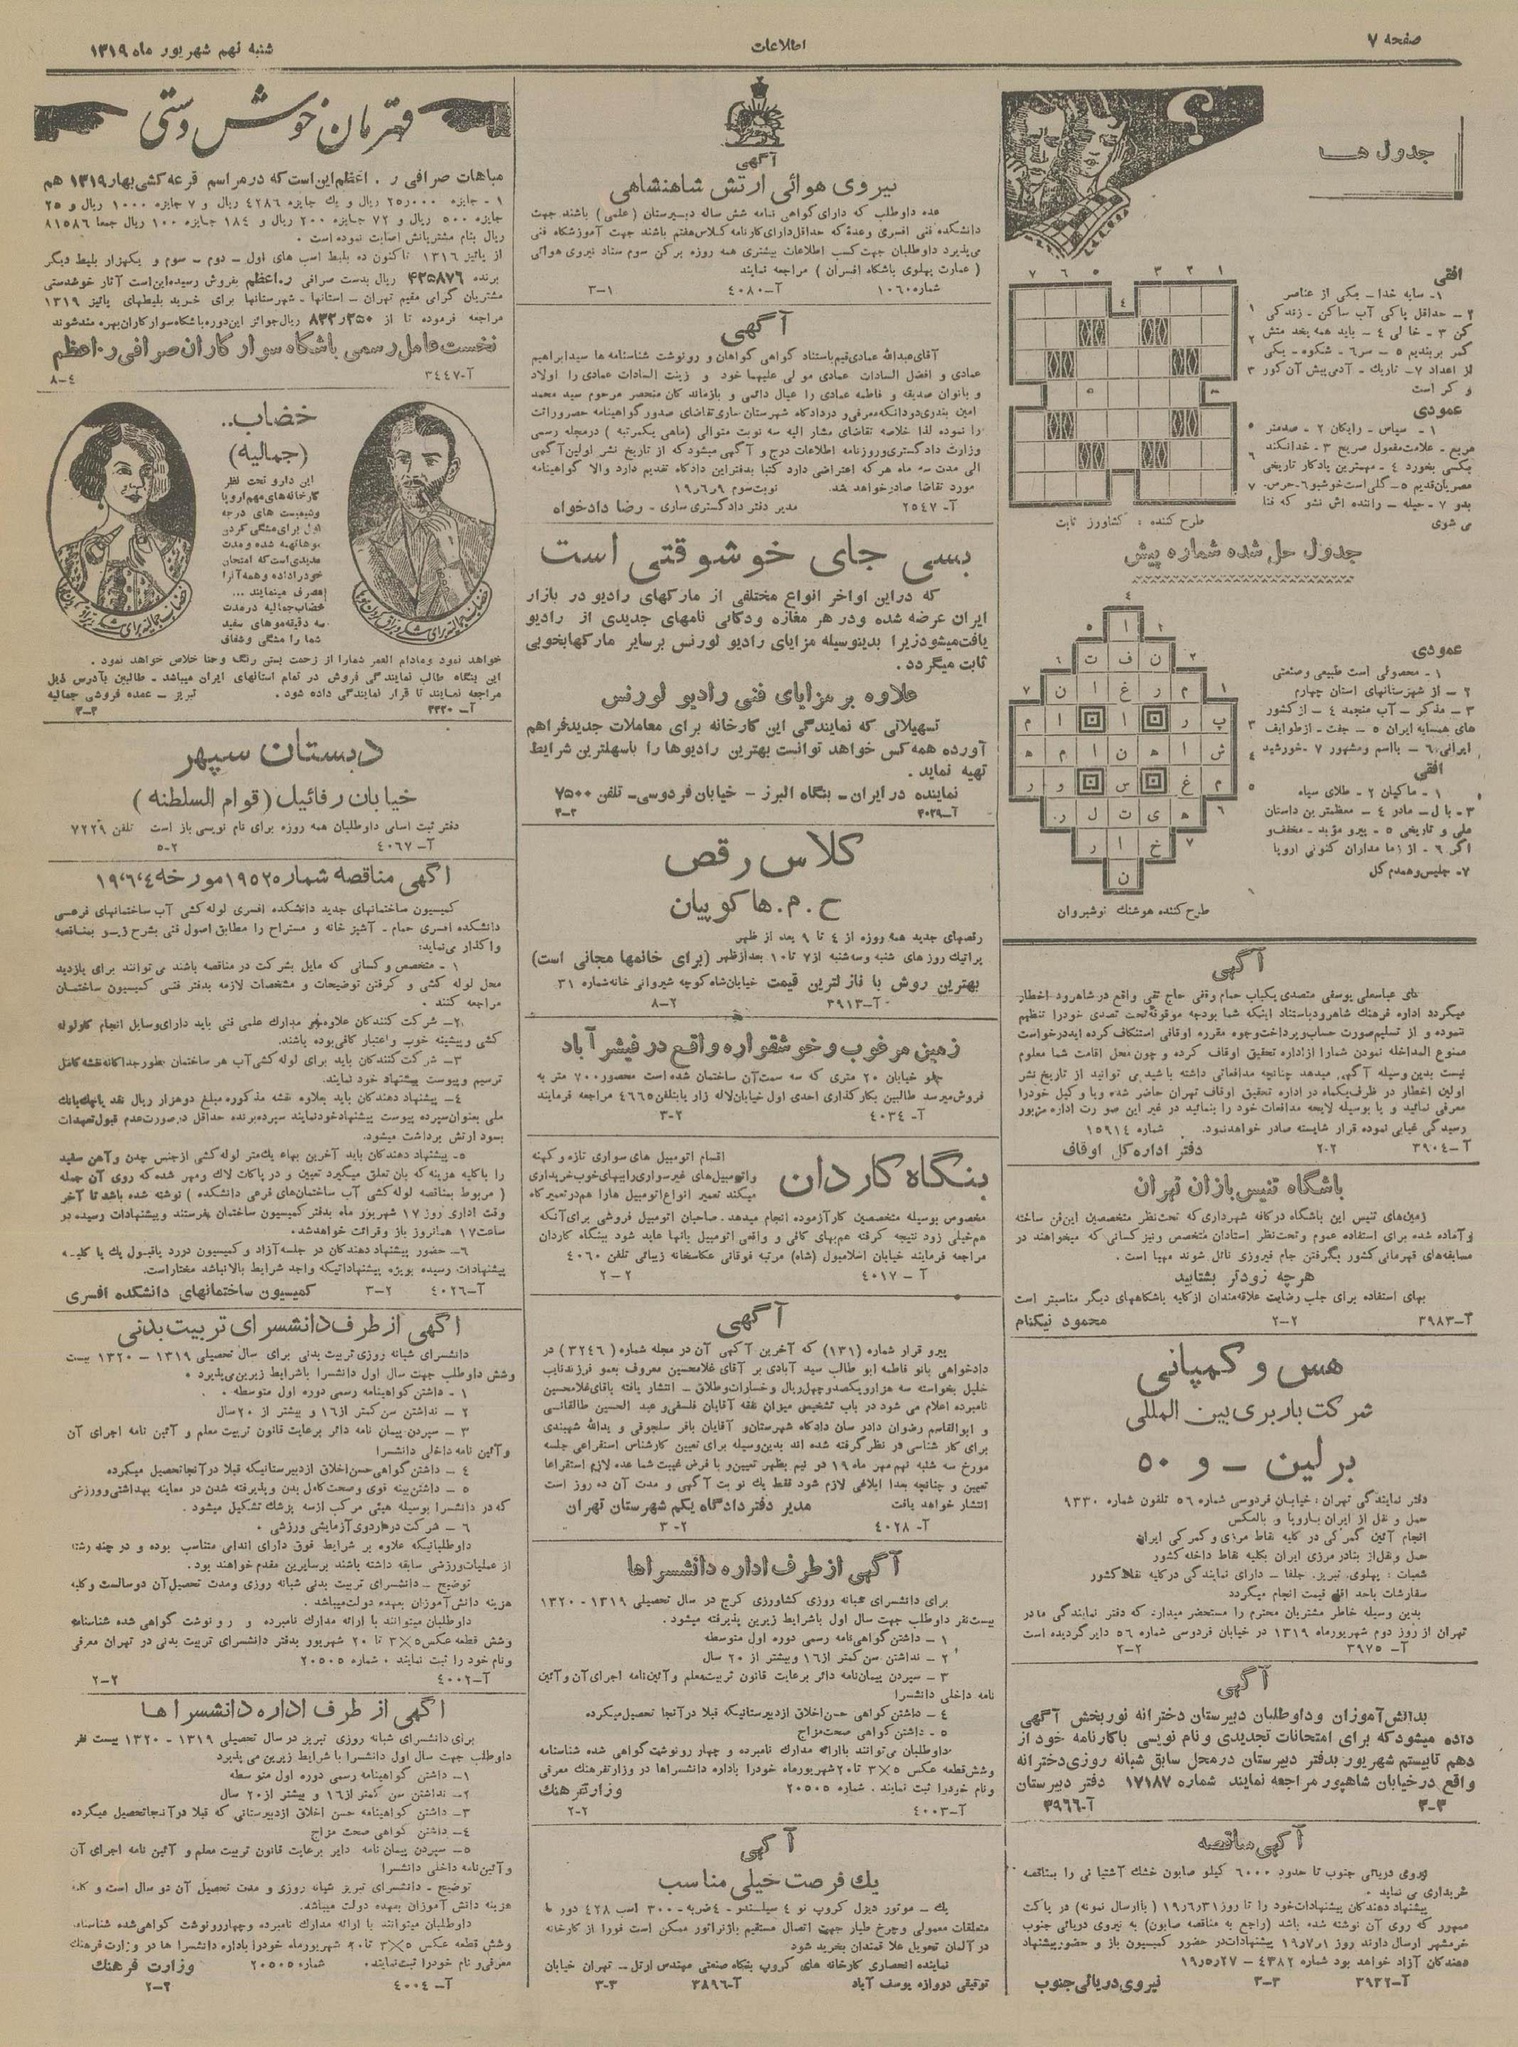 صفحه ۷
اطلاعات
شنبه نهم شهریور ماه ۱۳۱۹
جدول ها
افقی
۱- سایه خدا- یکی از عناصر
۲- حداقل پاکی آب ساکن - زندگی
کن ۳ - خالی ٤ - باید همه بخدمتش
کمر بربندیم ٥ - سر٦ - شکوه - یکی
از اعداد ۷ - تاریك - آدمی پیش آن کور
و کر است
عمودی
۱ - سپاس - رایگان ۲ - صدمتر
مربع - علامت مفعول صریح ۳ - خدانکند
بکسی بخورد ٤ - مهمترین یادگار تاریخی
مصریان قدیم ٥ - گلی است خوشبو ٦ - حرص-
بدو ۷ - حیله - راننده اش نشو که فنا
می شوی
طرح کننده : کشاورز ثابت
جدول حل شده شماره پیش
عمودی
۱ - محصولی است طبیعی و صنعتی
۲ - از شهرستانهای استان چهارم
۳ - مذکر - آب منجمد ٤ - از کشور
های همسایه ایران ٥ - جفت - ازطوایف
ایرانی ٦ - بااسم ومشهور ۷ -خورشید
افقی
۱ - ماکیان ۲ - طلای سیاه
۳ - بال - مادر ٤ - معظمترین داستان
ملی و تاریخی ٥ - پیرو مؤبد - مخفف و
اگر ٦ - از زمامداران کنونی اروپا
۷- جلیس و همدم گل
طرح کننده هوشنك نوشیروان
آگهی
آقای عباسعلی یوسفی متصدی یکباب حمام وقفی حاج تقی واقع در شاهرود اخطار
میگردد اداره فرهنك شاهرود باستناد اینکه شما بودجه موقوفه تحت تصدی خود را تنظیم
ننموده و از تسلیم صورت حساب و پرداخت وجوه مقرره اوقافی استنکاف کرده اید درخواست
ممنوع المداخله نمودن شمارا ازاداره تحقیق اوقاف کرده و چون محل اقامت شما معلوم
نیست بدین وسیله آگهی میدهد چنانچه مدافعاتی داشته باشید می توانید از تاریخ نشر
اولین اخطار در ظرف یکماه در اداره تحقیق اوقاف تهران حاضر شده ویا وکیل خودرا
معرفی نمائید و یا بوسیله لایحه مدافعات خود را بنمائید در غیر این صورت اداره مزبور
رسیدگی غیابی نموده قرار شایسته صادر خواهدنمود. شماره ۱٥۹۱٤
آ-۳۹۰٤ ۲-۲ دفتر اداره کل اوقاف
باشگاه تنیس بازان تهران
زمین های تنیس این باشگاه در کافه شهرداری که تحت نظر متخصصین این فن ساخته
و آماده شده برای استفاده عموم و تحت نظر استادان متخصص و نیز کسانی که میخواهند در
مسابقه های قهرمانی کشور بگرفتن جام فیروزی نائل شوند مهیا است .
هرچه زودتر بشتابید
بهای استفاده برای جلب رضایت علاقه مندان از کلیه باشگاههای دیگر مناسبتر است
آ-۳۹۸۳ ۲-۲ محمود نیکنام
هس و کمپانی
شرکت باربری بین المللی
برلین - و ٥۰
دفتر نمایندگی تهران : خیابان فردوسی شماره ٥٦ تلفون شماره ۹۳۳۰
حمل و نقل از ایران باروپا و بالعکس
انجام آئین گمرکی در کلیه نقاط مرزی و گمرکی ایران
حمل و نقل از بنادر مرزی ایران بکلیه نقاط داخله کشور
شعبات : پهلوی. تبریز. جلفا - دارای نمایندگی در کلیه نقاط کشور
سفارشات باحد اقل قیمت انجام میگردد
بدین وسیله خاطر مشتریان محترم را مستحضر میدارد که دفتر نمایندگی ما در
تهران از روز دوم شهریورماه ۱۳۱۹ در خیابان فردوسی شماره ٥٦ دایر گردیده است
آ- ۳۹۷٥ ۲-۲
آگهی
بدانش آموزان و داوطلبان دبیرستان دخترانه نوربخش آگهی
داده میشود که برای امتحانات تجدیدی و نام نویسی باکارنامه خود از
دهم تا بیستم شهریور بدفتر دبیرستان درمحل سابق شبانه روزی دخترانه
واقع در خیابان شاهپور مراجعه نمایند شماره ۱۷۱۸۷ دفتر دبیرستان
۳-۳ آ-۳۹٦٦
آگهی مناقصه
نیروی دریائی جنوب تا حدود ٦۰۰۰ کیلو صابون خشك آشتیانی را بمناقصه
خریداری می نماید .
پیشنهاد دهندگان پیشنهادات خود را تا روز ۱۹/٦/۳۱ ( باارسال نمونه) در پاکت
ممهور که روی آن نوشته شده باشد (راجع به مناقصه صابون) به نیروی دریائی جنوب
خرمشهر ارسال دارند روز ۱۹/۷/۱ پیشنهادات در حضور کمیسیون باز و حضور پیشنهاد
دهندگان آزاد خواهد بود شماره ٤۳۸۲ - ۱۹/٥/۲۷
آ-۳۹۳۲ ۳-۳ نیروی دریائی جنوب
آگهی
نیروی هوائی ارتش شاهنشاهی
عده داوطلب که دارای گواهی نامه شش ساله دبیرستان ( علمی ) باشند جهت
دانشکده فنی افسری وعدهٔ که حداقل دارای کارنامه کلاس هفتم باشند جهت آموزشگاه فنی
می پذیرد داوطلبان جهت کسب اطلاعات بیشتری همه روزه برکن سوم ستاد نیروی هوائی
( عمارت پهلوی باشگاه افسران ) مراجعه نمایند
شماره ۱۰٦۰ آ-٤۰۸۰ ۳-۱
آگهی
آقای عبدالله عمادی قیم باستناد گواهی گواهان و رونوشت شناسنامه ها سیدابراهیم
عمادی و افضل السادات عمادی مولی علیهما خود و زینت السادات عمادی را اولاد
و بانوان صدیقه و فاطمه عمادی را عیال دائمی و بازماندگان منحصر مرحوم سید محمد
امین بندری دودانکه معرفی و در دادگاه شهرستان ساری تقاضای صدور گواهینامه حصر وراثت
را نموده لذا خلاصه تقاضای مشار الیه سه نوبت متوالی (ماهی یکمرتبه ) درمجله رسمی
وزارت دادگستری و روزنامه اطلاعات درج و آگهی میشود که از تاریخ نشر اولین آگهی
الی مدت سه ماه هر که اعتراضی دارد کتبا بدفتر این دادگاه تقدیم دارد والا گواهینامه
مورد تقاضا صادر خواهد شد. نوبت سوم ۱۹/٦/۹
آ- ۲٥٤۷ مدیر دفتر دادگستری ساری - رضا دادخواه
بسی جای خوشوقتی است
که دراین اواخر انواع مختلفی از مارکهای رادیو در بازار
ایران عرضه شده و در هر مغازه و دکانی نامهای جدیدی از رادیو
یافت میشود زیرا بدینوسیله مزایای رادیو لورنس برسایر مارکها بخوبی
ثابت میگردد .
علاوه بر مزایای فنی رادیو لورنس
تسهیلاتی که نمایندگی این کارخانه برای معاملات جدید فراهم
آورده همه کس خواهد توانست بهترین رادیوها را باسهلترین شرایط
تهیه نماید .
نماینده در ایران- بنگاه البرز - خیابان فردوسی- تلفن ۷٥۰۰
آ-۴۰۲۹ ۴-۲
کلاس رقص
ح . م . هاکوپیان
رقصهای جدید همه روزه از ٤ تا ۹ بعد از ظهر
پراتیك روز های شنبه و سه شنبه از ۷ تا ۱۰ بعد از ظهر (برای خانمها مجانی است)
بهترین روش با نازلترین قیمت خیابان شاه کوچه شیروانی خانه شماره ۳۱
آ-۳۹۱۳ ۸-۲
زمین مرغوب و خوشقواره واقع در فیشرآباد
جلو خیابان ۲۰ متری که سه سمت آن ساختمان شده است محصور ۷۰۰ متر به
فروش میرسد طالبین بکار گذاری احدی اول خیابان لاله زار یا بتلفن ٤٦٦٥ مراجعه فرمایند
آ- ٤۰۳٤ ۳-۲
بنگاه کاردان
اقسام اتومبیل های سواری تازه و کهنه
و اتومبیل های غیر سواری را ببهای خوب خریداری
میکند تعمیر انواع اتومبیل هارا هم در تعمیر گاه
مخصوص بوسیله متخصصین کارآزموده انجام میدهد. صاحبان اتومبیل فروشی برای آنکه
هم خیلی زود نتیجه گرفته هم بهای کافی و واقعی اتومبیل بآنها عاید شود ببنگاه کاردان
مراجعه فرمایند خیابان اسلامبول (شاه) مرتبه فوقانی عکاسخانه زیبائی تلفن ٤۰٦۰
آ - ٤۰۱۷ ۲-۲
آگهی
پیرو قرار شماره (۱۳۱) که آخرین آگهی آن در مجله شماره ( ۳۲٤٦ ) در
دادخواهی بانو فاطمه ابو طالب سید آبادی بر آقای غلامحسین معروف بعمو فرزند نایب
خلیل بخواسته سه هزار و یکصد و چهل ریال و خسارات و طلاق - انتشار یافته بآقای غلامحسین
نامبرده اعلام می شود در باب تشخیص میزان نفقه آقایان فلسفی و عبد الحسین طالقانی
و ابوالقاسم رضوان دادرسان دادگاه شهرستان و آقایان باقر سلجوقی و یدالله شهبندی
برای کار شناسی در نظر گرفته شده اند بدین وسیله برای تعیین کارشناس استقراعی جلسه
مورخ سه شنبه نهم مهر ماه ۱۹ دو نیم بظهر تعیین و با فرض غیبت شما عده لازم استقراعا
تعیین و چنانچه بعدا ابلاغی لازم شود فقط یك نوبت آگهی و مدت آن ده روز است
انتشار خواهد یافت مدیر دفتر دادگاه یکم شهرستان تهران
آ- ٤۰۲۸ ۳-۲
آگهی از طرف اداره دانشسراها
برای دانشسرای شبانه روزی کشاورزی کرج در سال تحصیلی ۱۳۱۹ - ۱۳۲۰
بیست نفر داوطلب جهت سال اول باشرایط زیرین پذیرفته میشود .
۱ - داشتن گواهی نامه رسمی دوره اول متوسطه
۲ - نداشتن سن کمتر از ۱٦ و بیشتر از ۲۰ سال
۳ - سپردن پیمان نامه دائر برعایت قانون تربیت معلم و آئین نامه اجرای آن و آئین
نامه داخلی دانشسرا
٤ - داشتن گواهی حسن اخلاق ازدبیرستانیکه قبلا در آنجا تحصیل میکرده
٥ - داشتن گواهی صحت مزاج
داوطلبان می توانند باارائه مدارك نامبرده و چهار رونوشت گواهی شده شناسنامه
و شش قطعه عکس ۵×۳ تا ۲۰ شهریورماه خود را باداره دانشسراها در وزارت فرهنك معرفی
و نام خود را ثبت نمایند . شماره ۲۰٥۰٥ وزارت فرهنك
آ-٤۰۰۳ ۲-۲
آگهی
یك فرصت خیلی مناسب
یك - موتور دیزل کروپ نو ٤ سیلندر - ٤ ضربه - ۳۰۰ اسب ٤۲۸ دور با
متعلقات معمولی و چرخ طیار جهت اتصال مستقیم باژنراتور ممکن است فورا از کارخانه
در آلمان تحویل علاقمندان بخرید شود
نماینده انحصاری کارخانه های کروپ بنگاه صنعتی مهندس ارتل - تهران خیابان
توفیقی دروازه یوسف آباد آ-۳۸۹٦ ۳-۳
قهرمان خوش دستی
مباهات صرافی ر . اعظم این است که در مراسم قرعه کشی بهار ۱۳۱۹ هم
۱ - جایزه ۲٥٫۰۰۰ ریال و یك جایزه ٤۲۸٦ ریال و ۷ جایزه ۱۰۰۰ ریال و ۲٥
جایزه ٥۰۰ ریال و ۷۲ جایزه ۲۰۰ ریال و ۱۸٤ جایزه ۱۰۰ ریال جمعا ۸۱٥۸٦
ریال بنام مشتریانش اصابت نموده است .
از پائیز ۱۳۱٦ تاکنون ده بلیط اسب های اول - دوم - سوم و یکهزار بلیط دیگر
برنده ۴۲۵۸۷٦ ریال بدست صرافی ر.اعظم بفروش رسیده این است آثار خوشدستی
مشتریان گرامی مقیم تهران - استانها - شهرستانها برای خرید بلیطهای پائیز ۱۳۱۹
مراجعه فرموده تا از ۸۳۲٫۲۵۰ ریال جوائز این دوره باشگاه سوارکاران بهره مند شوند
نخست عامل رسمی باشگاه سوارکاران صرافی ر. اعظم
آ-۳٤٤۷ ۸-٤
خضاب..
(جمالیه)
این دارو تحت نظر
کارخانه های مهم اروپا
وشیمیست های درجه
اول برای مشکی کردن
موها تهیه شده و مدت
مدیدی است که امتحان
خود را داده و همه آنرا
مصرف مینمایند ...
خضاب جمالیه در مدت
سه دقیقه موهای سفید
شما را مشگی و شفاف
خواهد نمود و مادام العمر شما را از زحمت بستن رنگ و حنا خلاص خواهد نمود .
این بنگاه طالب نمایندگی فروش در تمام استانهای ایران میباشد . طالبین بآدرس ذیل
مراجعه نمایند تا قرار نمایندگی داده شود . تبریز - عمده فروشی جمالیه
آ-۳۳۲۰
دبستان سپهر
خیابان رفائیل ( قوام السلطنه )
دفتر ثبت اسامی داوطلبان همه روزه برای نام نویسی باز است تلفن ۷۲۲۹
آ-٤۰٦۷ ٥-۲
آگهی مناقصه شماره ۱۹٥۲٥ مورخه ۱۹،٦،٤
کمیسیون ساختمانهای جدید دانشکده افسری لوله کشی آب ساختمانهای فرعی
دانشکده افسری حمام - آشپز خانه و مستراح را مطابق اصول فنی بشرح زیر و بمناقصه
واگذار می نماید:
۱ - متخصص و کسانی که مایل بشرکت در مناقصه باشند می توانند برای بازدید
محل لوله کشی و گرفتن توضیحات و مشخصات لازمه بدفتر فنی کمیسیون ساختمان
مراجعه کنند .
۲- شرکت کنندگان علاوه بر مدارك علمی فنی باید دارای وسایل انجام کار لوله
کشی و پیشینه خوب و اعتبار کافی بوده باشند.
۳- شرکت کنندگان باید برای لوله کشی آب هر ساختمان بطور جداگانه نقشه کامل
ترسیم و پیوست پیشنهاد خود نمایند.
٤- پیشنهاد دهندگان باید بعلاوه نقشه مذکوره مبلغ دو هزار ریال نقد یا چك بانك
ملی بعنوان سپرده پیوست پیشنهاد خود نمایند سپرده برنده حداقل در صورت عدم قبول تعهدات
بسود ارتش برداشت میشود.
٥- پیشنهاد دهندگان باید آخرین بهاء یك متر لوله کشی از جنس چدن و آهن سفید
را باکلیه هزینه که بان تعلق میگیرد تعیین و در پاکات لاك و مهر شده که روی آن جمله
( مربوط بمناقصه لوله کشی آب ساختمان های فرعی دانشکده ) نوشته شده باشد تا آخر
وقت اداری روز ۱۷ شهریور ماه بدفتر کمیسیون ساختمان بفرستند و پیشنهادات رسیده در
ساعت ۱۷ همانروز باز و قرائت خواهد شد.
٦- حضور پیشنهاد دهندگان در جلسه آزاد و کمیسیون در رد یا قبول یك یا کلیه
پیشنهادات رسیده بویژه پیشنهاداتیکه واجد شرایط بالا نباشد مختار است.
آ-٤۰۲٦ ۳-۲ کمیسیون ساختمانهای دانشکده افسری
آگهی از طرف دانشسرای تربیت بدنی
دانشسرای شبانه روزی تربیت بدنی برای سال تحصیلی ۱۳۱۹ - ۱۳۲۰ بیست
و شش داوطلب جهت سال اول دانشسرا باشرایط زیرین می پذیرد .
۱ - داشتن گواهینامه رسمی دوره اول متوسطه .
۲ - نداشتن سن کمتر از ۱٦ و بیشتر از ۲۰ سال
۳ - سپردن پیمان نامه دائر برعایت قانون تربیت معلم و آئین نامه اجرای آن
و آئین نامه داخلی دانشسرا
٤ - داشتن گواهی حسن اخلاق ازدبیرستانیکه قبلا در آنجا تحصیل میکرده
٥ - داشتن بنیه قوی و صحت کامل بدن و پذیرفته شدن در معاینه بهداشتی و ورزشی
که در دانشسرا بوسیله هیئتی مرکب از سه پزشك تشکیل میشود .
٦ - شرکت در اردوی آزمایشی ورزشی .
داوطلبانیکه علاوه بر شرایط فوق دارای اندامی متناسب بوده و در چند رشته
از عملیات ورزشی سابقه داشته باشند برسایرین مقدم خواهند بود .
توضیح - دانشسرای تربیت بدنی شبانه روزی و مدت تحصیل آن دو سال است و کلیه
هزینه دانش آموزان بعهده دولت میباشد .
داوطلبان میتوانند با ارائه مدارك نامبرده و رو نوشت گواهی شده شناسنامه
و شش قطعه عکس ۵×۳ تا ۲۰ شهریور بدفتر دانشسرای تربیت بدنی در تهران معرفی
و نام خود را ثبت نمایند . شماره ۲۰٥۰٥
آ-٤۰۰۲ ۲-۲
آگهی از طرف اداره دانشسرا ها
برای دانشسرای شبانه روزی تبریز در سال تحصیلی ۱۳۱۹ - ۱۳۲۰ بیست نفر
داوطلب جهت سال اول دانشسرا با شرایط زیرین می پذیرد
۱- داشتن گواهینامه رسمی دوره اول متوسطه
۲- نداشتن سن کمتر از ۱٦ و بیشتر از ۲۰ سال
۳- داشتن گواهینامه حسن اخلاق از دبیرستانی که قبلا در آنجا تحصیل میکرده
٤- داشتن گواهی صحت مزاج
٥- سپردن پیمان نامه دایر برعایت قانون تربیت معلم و آئین نامه اجرای آن
و آئین نامه داخلی دانشسرا
توضیح - دانشسرای تبریز شبانه روزی و مدت تحصیل آن دو سال است و کلیه
هزینه دانش آموزان بعهده دولت میباشد.
داوطلبان میتوانند با ارائه مدارك نامبرده و چهار رونوشت گواهی شده شناسنامه
و شش قطعه عکس ۵×۳ تا ۲۰ شهریورماه خود را باداره دانشسرا ها در وزارت فرهنك
معرفی و نام خود را ثبت نمایند. شماره ۲۰٥۰٥ وزارت فرهنك
آ- ٤۰۰٤ ۲-۲